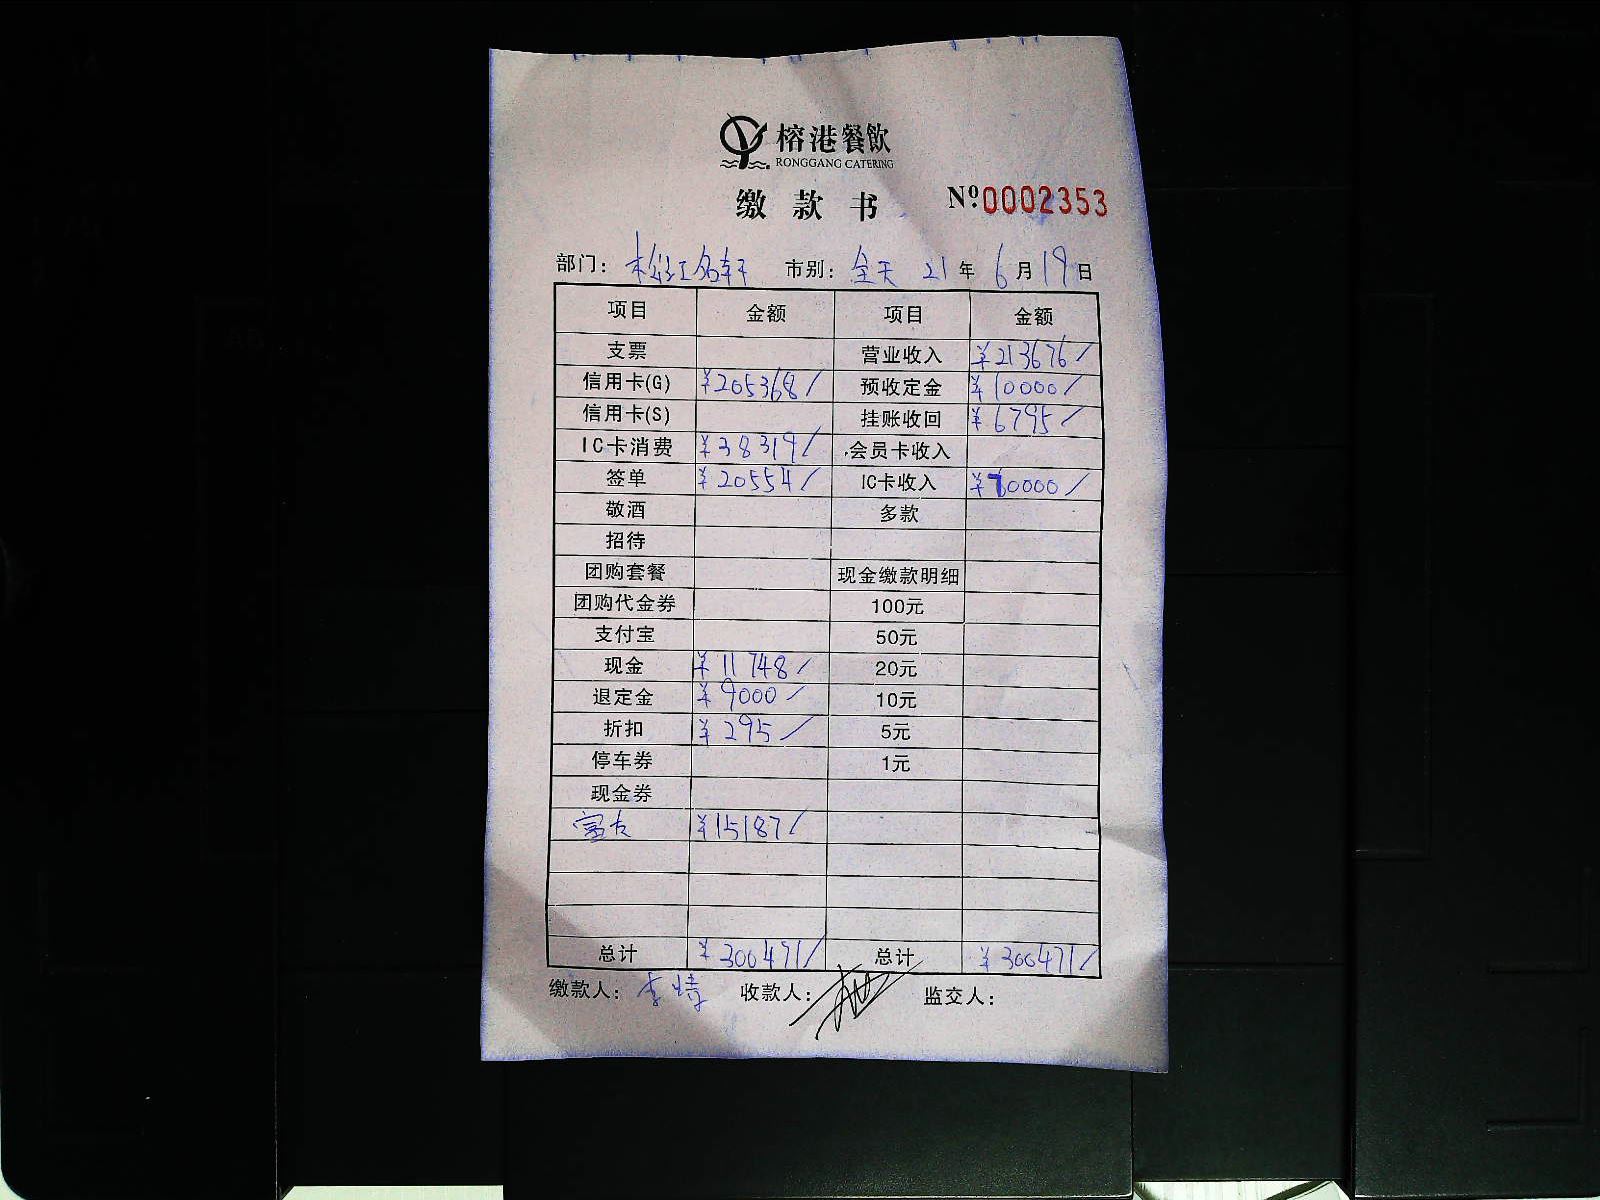 榕港餐饮
RONGGANG CATERING
缴款书 Nº0002353
部门： 松江名轩 市别： 全天 21 年 6 月 19 日
项目 金额 项目 金额
支票 营业收入 ¥213676/
信用卡(G) ¥205368/ 预收定金 ¥10000/
信用卡(S) 挂账收回 ¥6795/
IC卡消费 ¥38319/ 会员卡收入
签单 ¥20554/ IC卡收入 ¥70000/
敬酒 多款
招待
团购套餐 现金缴款明细
团购代金券 100元
支付宝 50元
现金 ¥11748/ 20元
退定金 ¥9000/ 10元
折扣 ¥295/ 5元
停车券 1元
现金券
富友 ¥15187/
总计 ¥300471/ 总计 ¥300471/
缴款人： 李 收款人： 监交人：